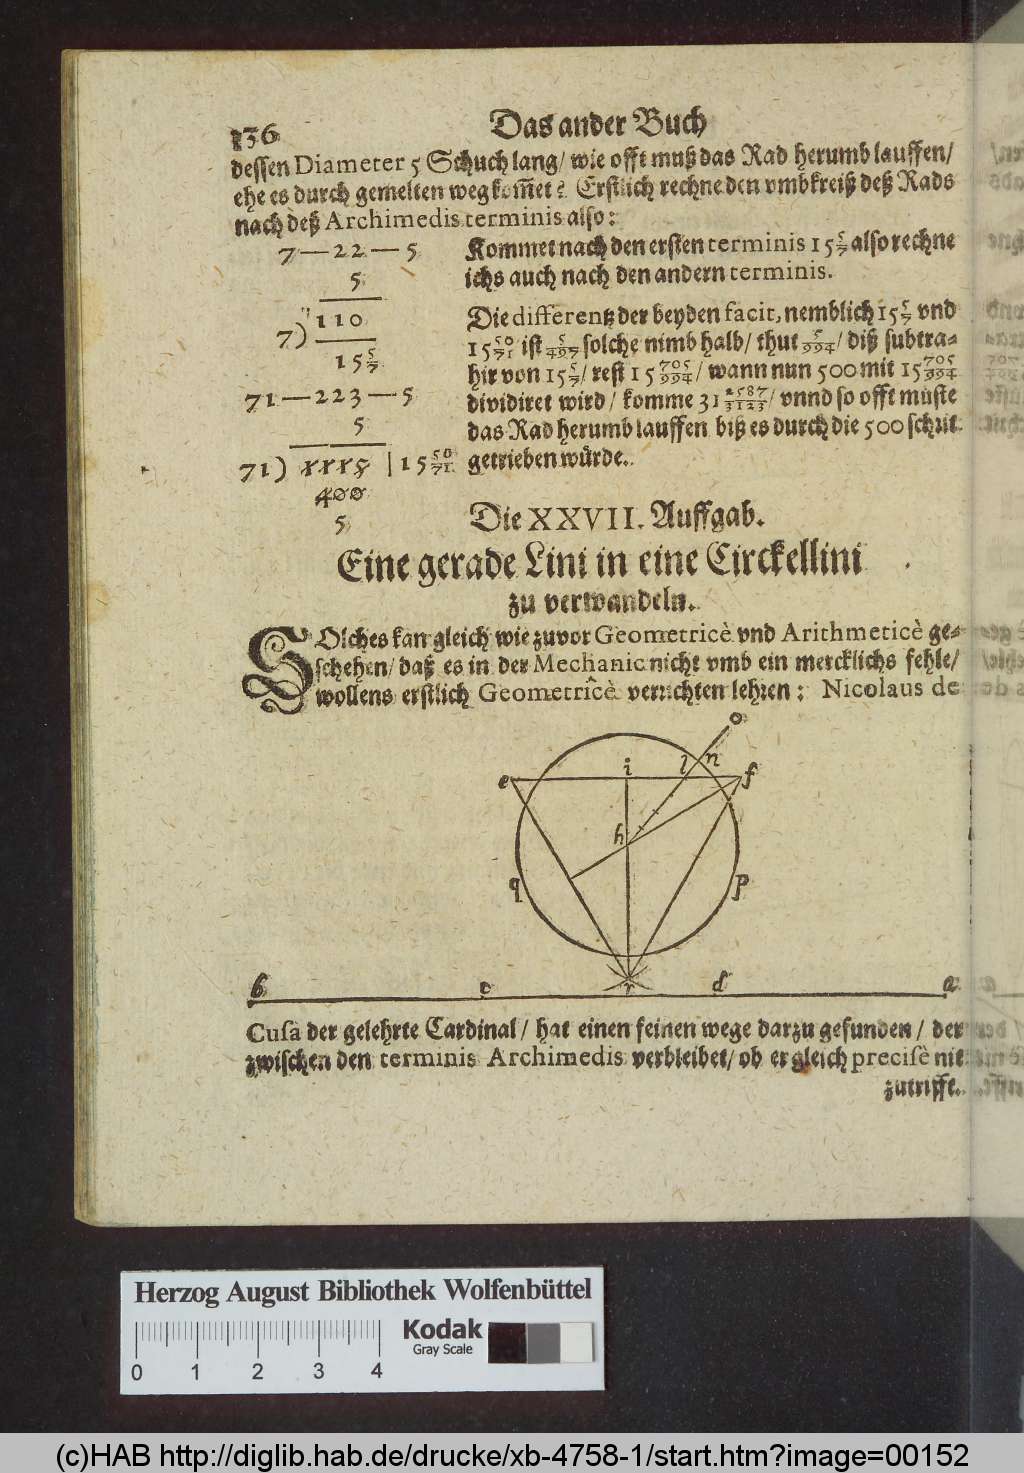 136
Das ander Buch
dessen Diameter 5 Schuch lang/ wie offt muß das Rad herumb lauffen/
ehe es durch gemelten weg kom̃et? Erstlich rechne den vmbkreiß deß Rads
nach deß Archimedis terminis also:
7—22—5
5
110
7)
15 5/7
71—223—5
5
71) 1115 | 15 50/71
400
5
Kommet nach den ersten terminis 15 5/7 also rechne
ichs auch nach den andern terminis.
Die differentz der beyden facit, nemblich 15 5/7 vnd
15 50/71 ist 5/497 solche nimb halb/ thut 5/994/ diß subtra-
hir von 15 5/7/ rest 15 705/994/ wann nun 500 mit 15 705/994
dividiret wird/ komme 31 2587/3123/ vnnd so offt müste
das Rad herumb lauffen biß es durch die 500 schrit
getrieben würde.
Die XXVII. Auffgab.
Eine gerade Lini in eine Circkellini
zu verwandeln.
SOlches kan gleich wie zuvor Geometricè vnd Arithmeticè ge-
schehen/ daß es in der Mechanic nicht vmb ein mercklichs fehle/
wollens erstlich Geometricè verrichten lehren: Nicolaus de
o
e i l n f
h
q p
b c r d a
Cusa der gelehrte Cardinal/ hat einen feinen wege darzu gefunden/ der
zwischen den terminis Archimedis verbleibet/ ob er gleich precisè nit
zutrifft.
Herzog August Bibliothek Wolfenbüttel
Kodak
Gray Scale
0 1 2 3 4
(c)HAB http://diglib.hab.de/drucke/xb-4758-1/start.htm?image=00152